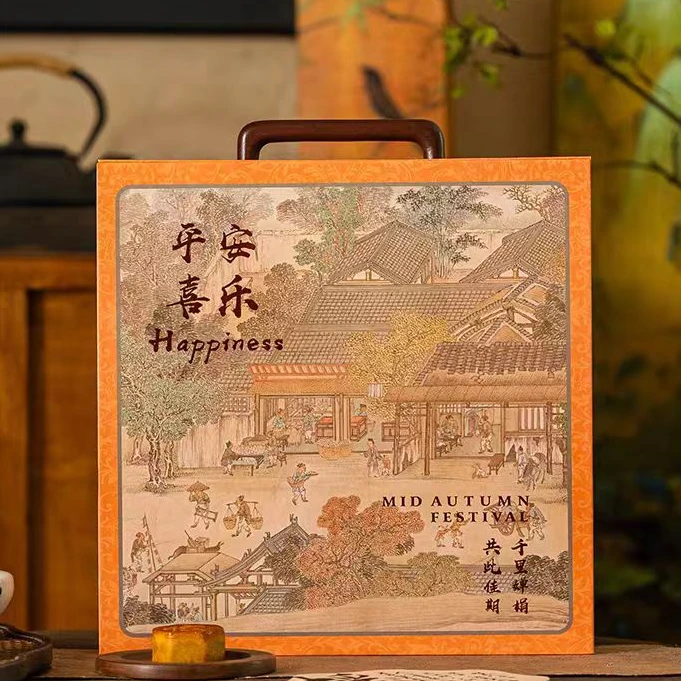 平安
喜乐
Happiness
MID AUTUMN
FESTIVAL
千里
共此佳期